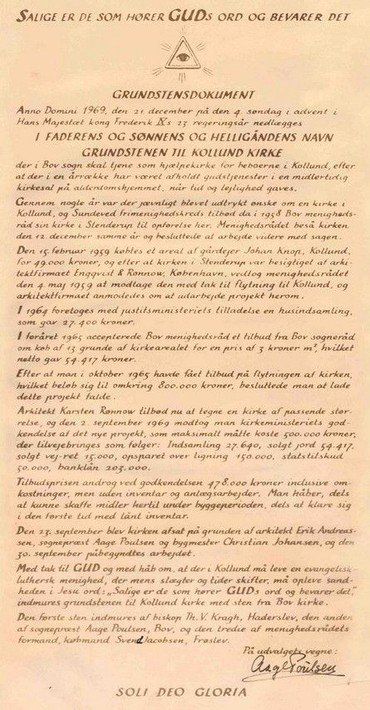 SALIGE ER DE SOM HØRER GUDS ORD OG BEVARER DET
GRUNDSTENSDOKUMENT
Anno Domini 1969, den 21. december på den 4. søndag i advent i
Hans Majestæt kong Frederik IX's 23. regeringsår nedlægges
I FADERENS OG SØNNENS OG HELLIGÅNDENS NAVN
GRUNDSTENEN TIL KOLLUND KIRKE
der i Bov sogn skal tjene som hjælpekirke for beboerne i Kollund, efter
at der i en årrække har været afholdt gudstjenester i en midlertidig
kirkesal på alderdomshjemmet, når tid og lejlighed gaves.
Gennem nogle år var der jævnligt blevet udtrykt ønske om en kirke i
Kollund, og Sundeved frimenighedskreds tilbød da i 1958 Bov menigheds-
råd sin kirke i Stenderup til opførelse her. Menighedsrådet beså kirken
den 12. december samme år og besluttede at arbejde videre med sagen.
Den 15. februar 1959 købtes et areal af gårdejer Johan Knop, Kollund,
for 49.000 kroner, og efter at kirken i Stenderup var besigtiget af arki-
tektfirmaet Engqvist & Rønnow, København, vedtog menighedsrådet
den 4. maj 1959 at modtage den med tak til flytning til Kollund, og
arkitektfirmaet anmodedes om at udarbejde projekt herom.
I 1964 foretoges med justitsministeriets tilladelse en husindsamling,
som gav 27.400 kroner.
I foråret 1965 accepterede Bov menighedsråd et tilbud fra Bov sogneråd
om køb af 13. grunde af kirkearealet for en pris af 3 kroner m², hvilket
netto gav 54.417 kroner.
Efter at man i oktober 1965 havde fået tilbud på flytningen af kirken,
hvilket beløb sig til omkring 800.000 kroner, besluttede man at lade
dette projekt falde.
Arkitekt Karsten Rønnow tilbød nu at tegne en kirke af passende stør-
relse, og den 2. september 1969 modtog man kirkeministeriets god-
kendelse af det nye projekt, som maksimalt måtte koste 500.000 kroner,
der tilvejebringes som følger: Indsamling 27.640, solgt jord 54.417,
solgt vej-ret 15.000, opsparet over ligning 150.000, statstilskud
50.000, banklån 203.000.
Tilbudsprisen androg ved godkendelsen 478.000 kroner inclusive om-
kostninger, men uden inventar og anlægsarbejder. Man håber, dels
at kunne skaffe midler hertil under byggeperioden, dels at klare sig
i den første tid med lånt inventar.
Den 23. september blev kirken afsat på grunden af arkitekt Erik Andreas-
sen, sognepræst Aage Poulsen og bygmester Christian Johansen, og den
30. september påbegyndtes arbejdet.
Med tak til GUD og med håb om, at der i Kollund må leve en evangelisk-
luthersk menighed, der mens slægter og tider skifter, må opleve sand-
heden i Jesu ord: „Salige er de som hører GUDs ord og bevarer det",
indmures grundstenen til Kollund kirke med sten fra Bov kirke.
Den første sten indmures af biskop Th. V. Kragh, Haderslev, den anden
af sognepræst Aage Poulsen, Bov, og den tredie af menighedsrådets
formand, købmand Svend Jacobsen, Frøslev.
På udvalgets vegne:
Aage Poulsen
SOLI DEO GLORIA